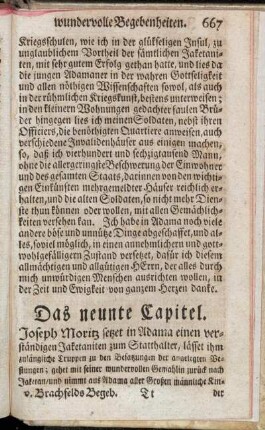 wundervolle Begebenheiten. 667
Kriegsschulen, wie ich in der glükseligen Insul, zu
unglaublichem Vortheil der sämtlichen Jaketani-
ten, mit sehr gutem Erfolg gethan hatte, und lies da
die jungen Adamaner in der wahren Gottseligkeit
und allen nöthigen Wissenschaften sowol, als auch
in der rühmlichen Kriegskunst, bestens unterweisen;
in den kleinern Wohnungen gedachter faulen Brü-
der hingegen lies ich meinen Soldaten, nebst ihren
Officiers, die benöthigten Quartiere anweisen, auch
verschiedene Invalidenhäuser aus einigen machen,
so, daß ich vierhundert und sechzigtausend Mann,
ohne die allergeringste Beschwerung der Einwohner
und des gesamten Staats, darinnen von den wichti-
gen Einkünften mehrgemeldter Häuser reichlich er-
halten, und die alten Soldaten, so nicht mehr Dien-
ste thun können oder wollen, mit allen Gemächlich-
keiten versehen kan. Ich habe in Adama noch viele
andere böse und unnütze Dinge abgeschaffet, und al-
les, soviel möglich, in einen annehmlichern und gott-
wohlgefälligern Zustand versetzet, dafür ich diesem
allmächtigen und allgütigen HErrn, der alles durch
mich unwürdigen Menschen ausrichten wollen, in
der Zeit und Ewigkeit von ganzem Herzen danke.
Das neunte Capitel.
Joseph Moritz setzet in Adama einen ver-
ständigen Jaketaniten zum Statthalter, lässet ihm
anfängliche Truppen zu den Besatzungen der angelegten Ve-
stungen; gehet mit seiner wundervollen Gemahlin zurück nach
Jaketan, und nimmt aus Adama aller Großen männliche Kin-
v. Brachfelds Begeb. Tt der